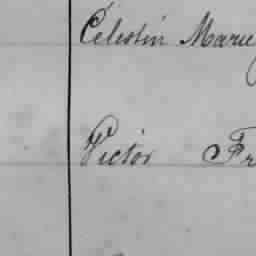 Célestin Marie
Victor Fr